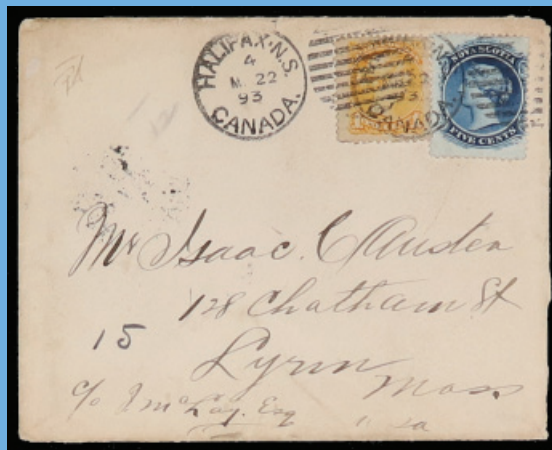 HALIFAX. N.S.
4
M. 22
93
CANADA.
NOVA SCOTIA
FIVE CENTS
Mr Isaac. C Austen
128 Chatham St
15
Lynn
Mass
c/o Esq